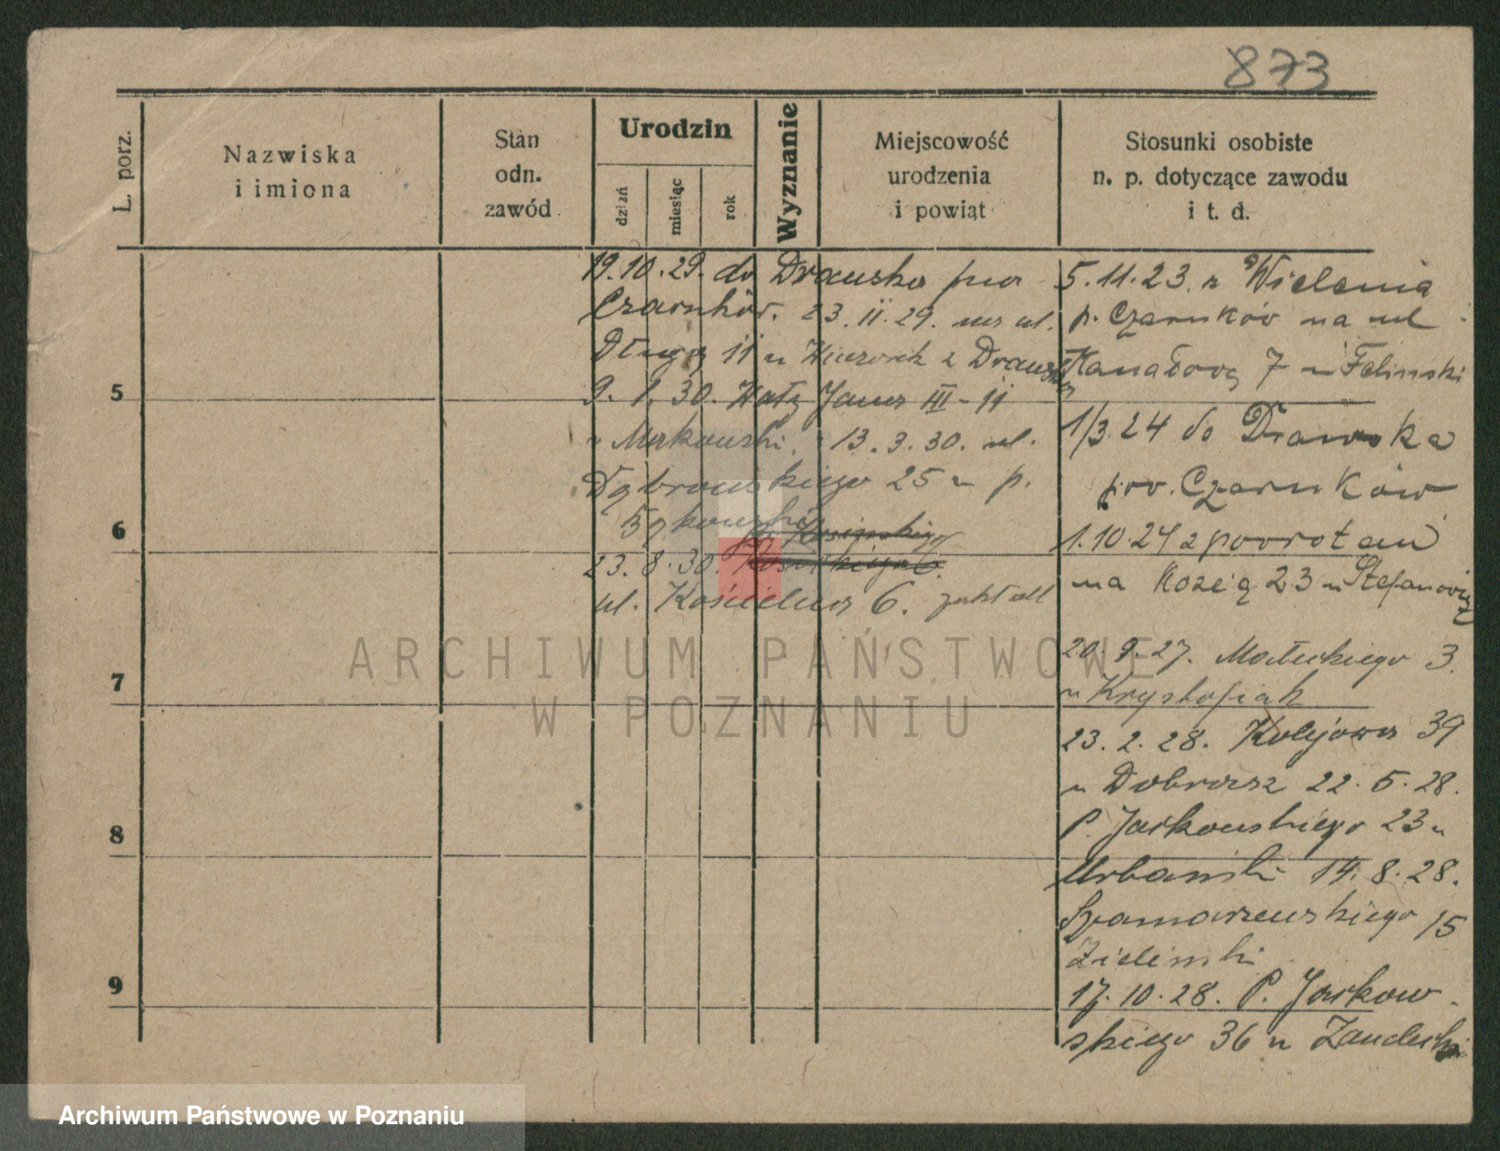 873
L. porz.
Nazwiska
i imiona
Stan
odn.
zawód
Urodzin
dzień
miesiąc
rok
Wyznanie
Miejscowość
urodzenia
i powiąt
Stosunki osobiste
n. p. dotyczące zawodu
i t. d.
5
6
7
8
9
19.10.29. do Drausko pow
Czarnków. 23.11.29. ul.
Długa 11 u z Drauska
9.1.30. Jana III-11
u Markowski. 13.3.30. ul.
Dąbrowskiego 25 u p.
23.8.30.
ul. Kościelna 6.
5.11.23. z Wielenia
p. Czarnków na ul.
Kanałową 7 u Feliński
1/3.24 do Drawska
pow. Czarnków
1.10.24 z powrotem
na Kozią 23 u Stefanowicz
20.9.27. Małeckiego 3.
u Krysztofiak
23.2.28. Kolejowa 39
u Dobrosz 22.5.28.
P. Jackowskiego 23 u
Urbański 14.8.28.
Szamarzewskiego 15
Zieliński
17.10.28. P. Jackow-
skiego 36 u
ARCHIWUM PAŃSTWOWE
W POZNANIU
Archiwum Państwowe w Poznaniu